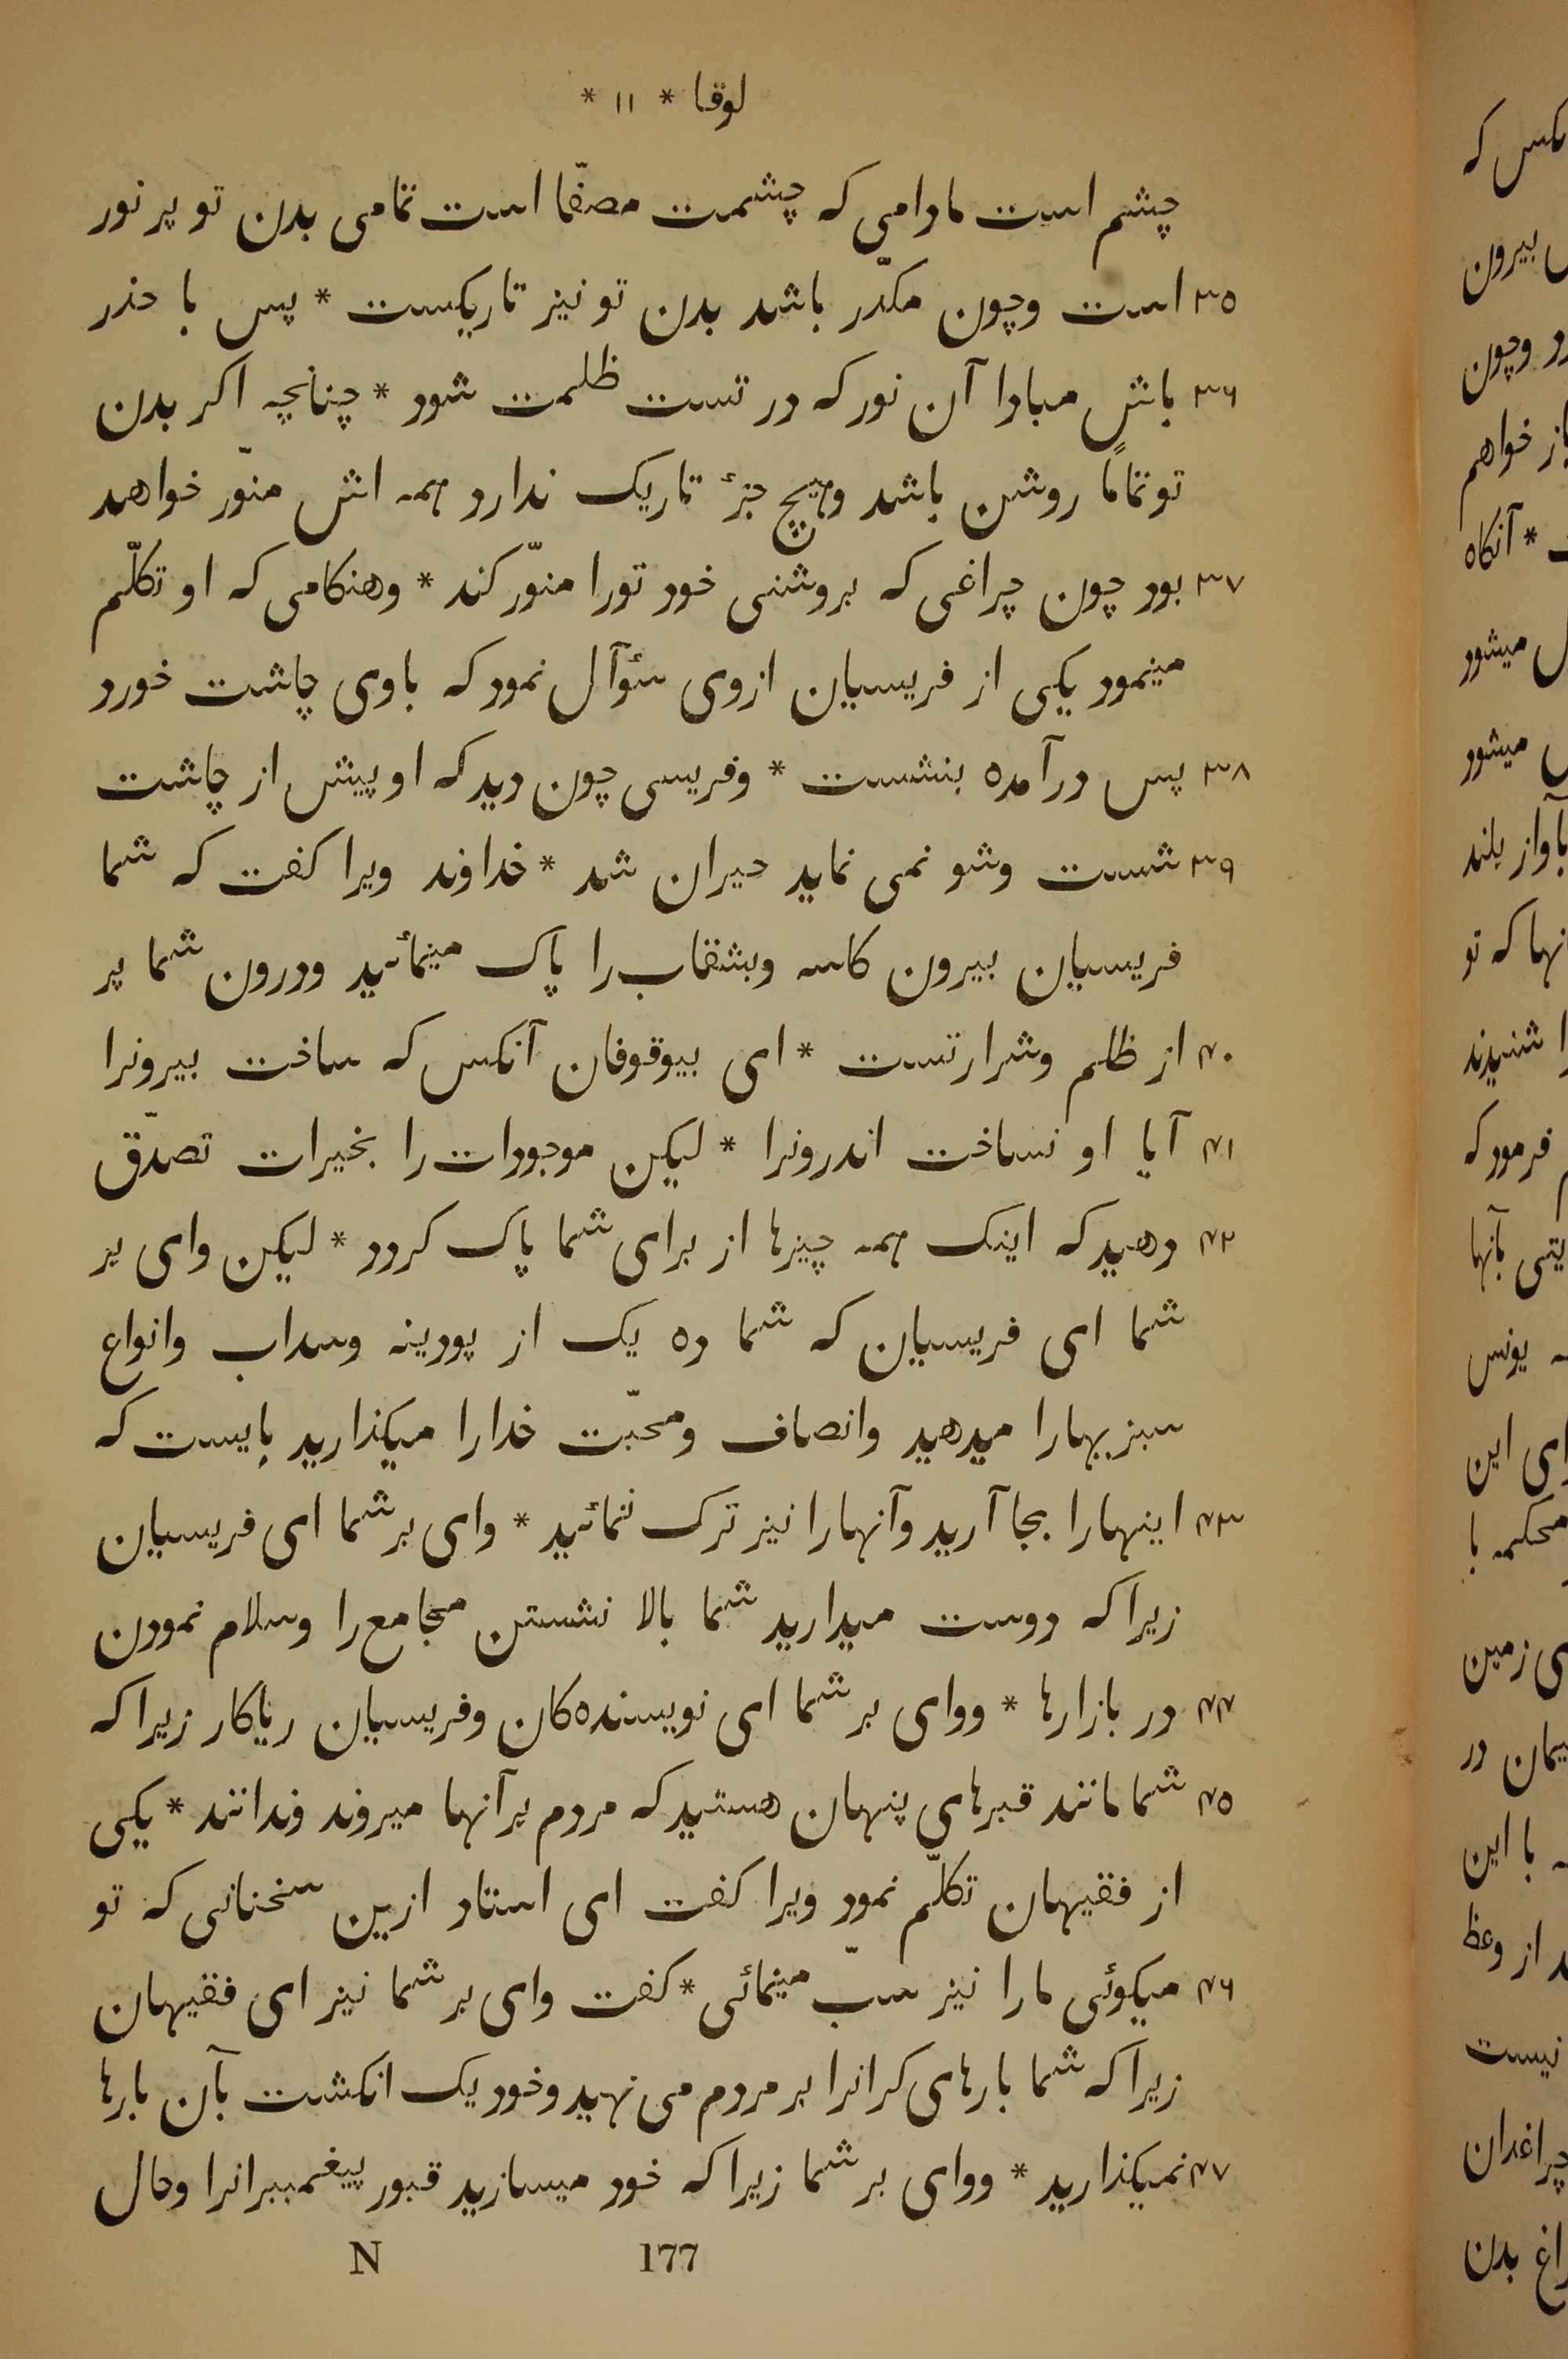 لوقا * ۱۱ *
چشم است مادامی که چشمت مصفّا است تمامی بدن تو پر نور
۳۵ است وچون مکدّر باشد بدن تو نیز تاریکست * پس با حذر
۳۶ باش مبادا آن نور که در تست ظلمت شود * چنانچه اکر بدن
تو تمامًا روشن باشد وهیچ جزٔ تاریک ندارد همه اش منوّر خواهد
۳۷ بود چون چراغی که بروشنی خود تورا منوّر کند * وهنکامی که او تکلّم
مینمود یکی از فریسیان ازوی سؤآل نمود که باوی چاشت خورد
۳۸ پس درآمده بنشست * وفریسی چون دید که او پیش از چاشت
۳۹ شست وشو نمی نماید حیران شد * خداوند ویرا کفت که شما
فریسیان بیرون کاسه وبشقاب را پاک مینمائید ودرون شما پر
۴۰ از ظلم وشرارتست * ای بیوقوفان آنکس که ساخت بیرونرا
۴۱ آیا او نساخت اندرونرا * لیکن موجودات را بخیرات تصدّق
۴۲ دهید که اینک همه چیزها از برای شما پاک کردد * لیکن وای بر
شما ای فریسیان که شما ده یک از پودینه وسداب وانواع
سبزیهارا میدهید وانصاف ومحبّت خدارا میکذارید بایست که
۴۳ اینهارا بجا آرید وآنهارا نیز ترک ننمائید * وای بر شما ای فریسیان
زیرا که دوست میدارید شما بالا نشستن مجامع را وسلام نمودن
۴۴ در بازارها * ووای بر شما ای نویسنده‌کان وفریسیان ریاکار زیرا که
۴۵ شما مانند قبرهای پنهان هستید که مردم بر آنها میروند وندانند * یکی
از فقیهان تکلّم نمود ویرا کفت ای استاد ازین سخنانی که تو
۴۶ میکوئی مارا نیز سبّ مینمائی * کفت وای بر شما نیز ای فقیهان
زیرا که شما بارهای کرانرا بر مردم می نهید وخود یک انکشت بآن بارها
۴۷ نمیکذارید * ووای بر شما زیرا که خود میسازید قبور پیغمببرانرا وحال
N 177